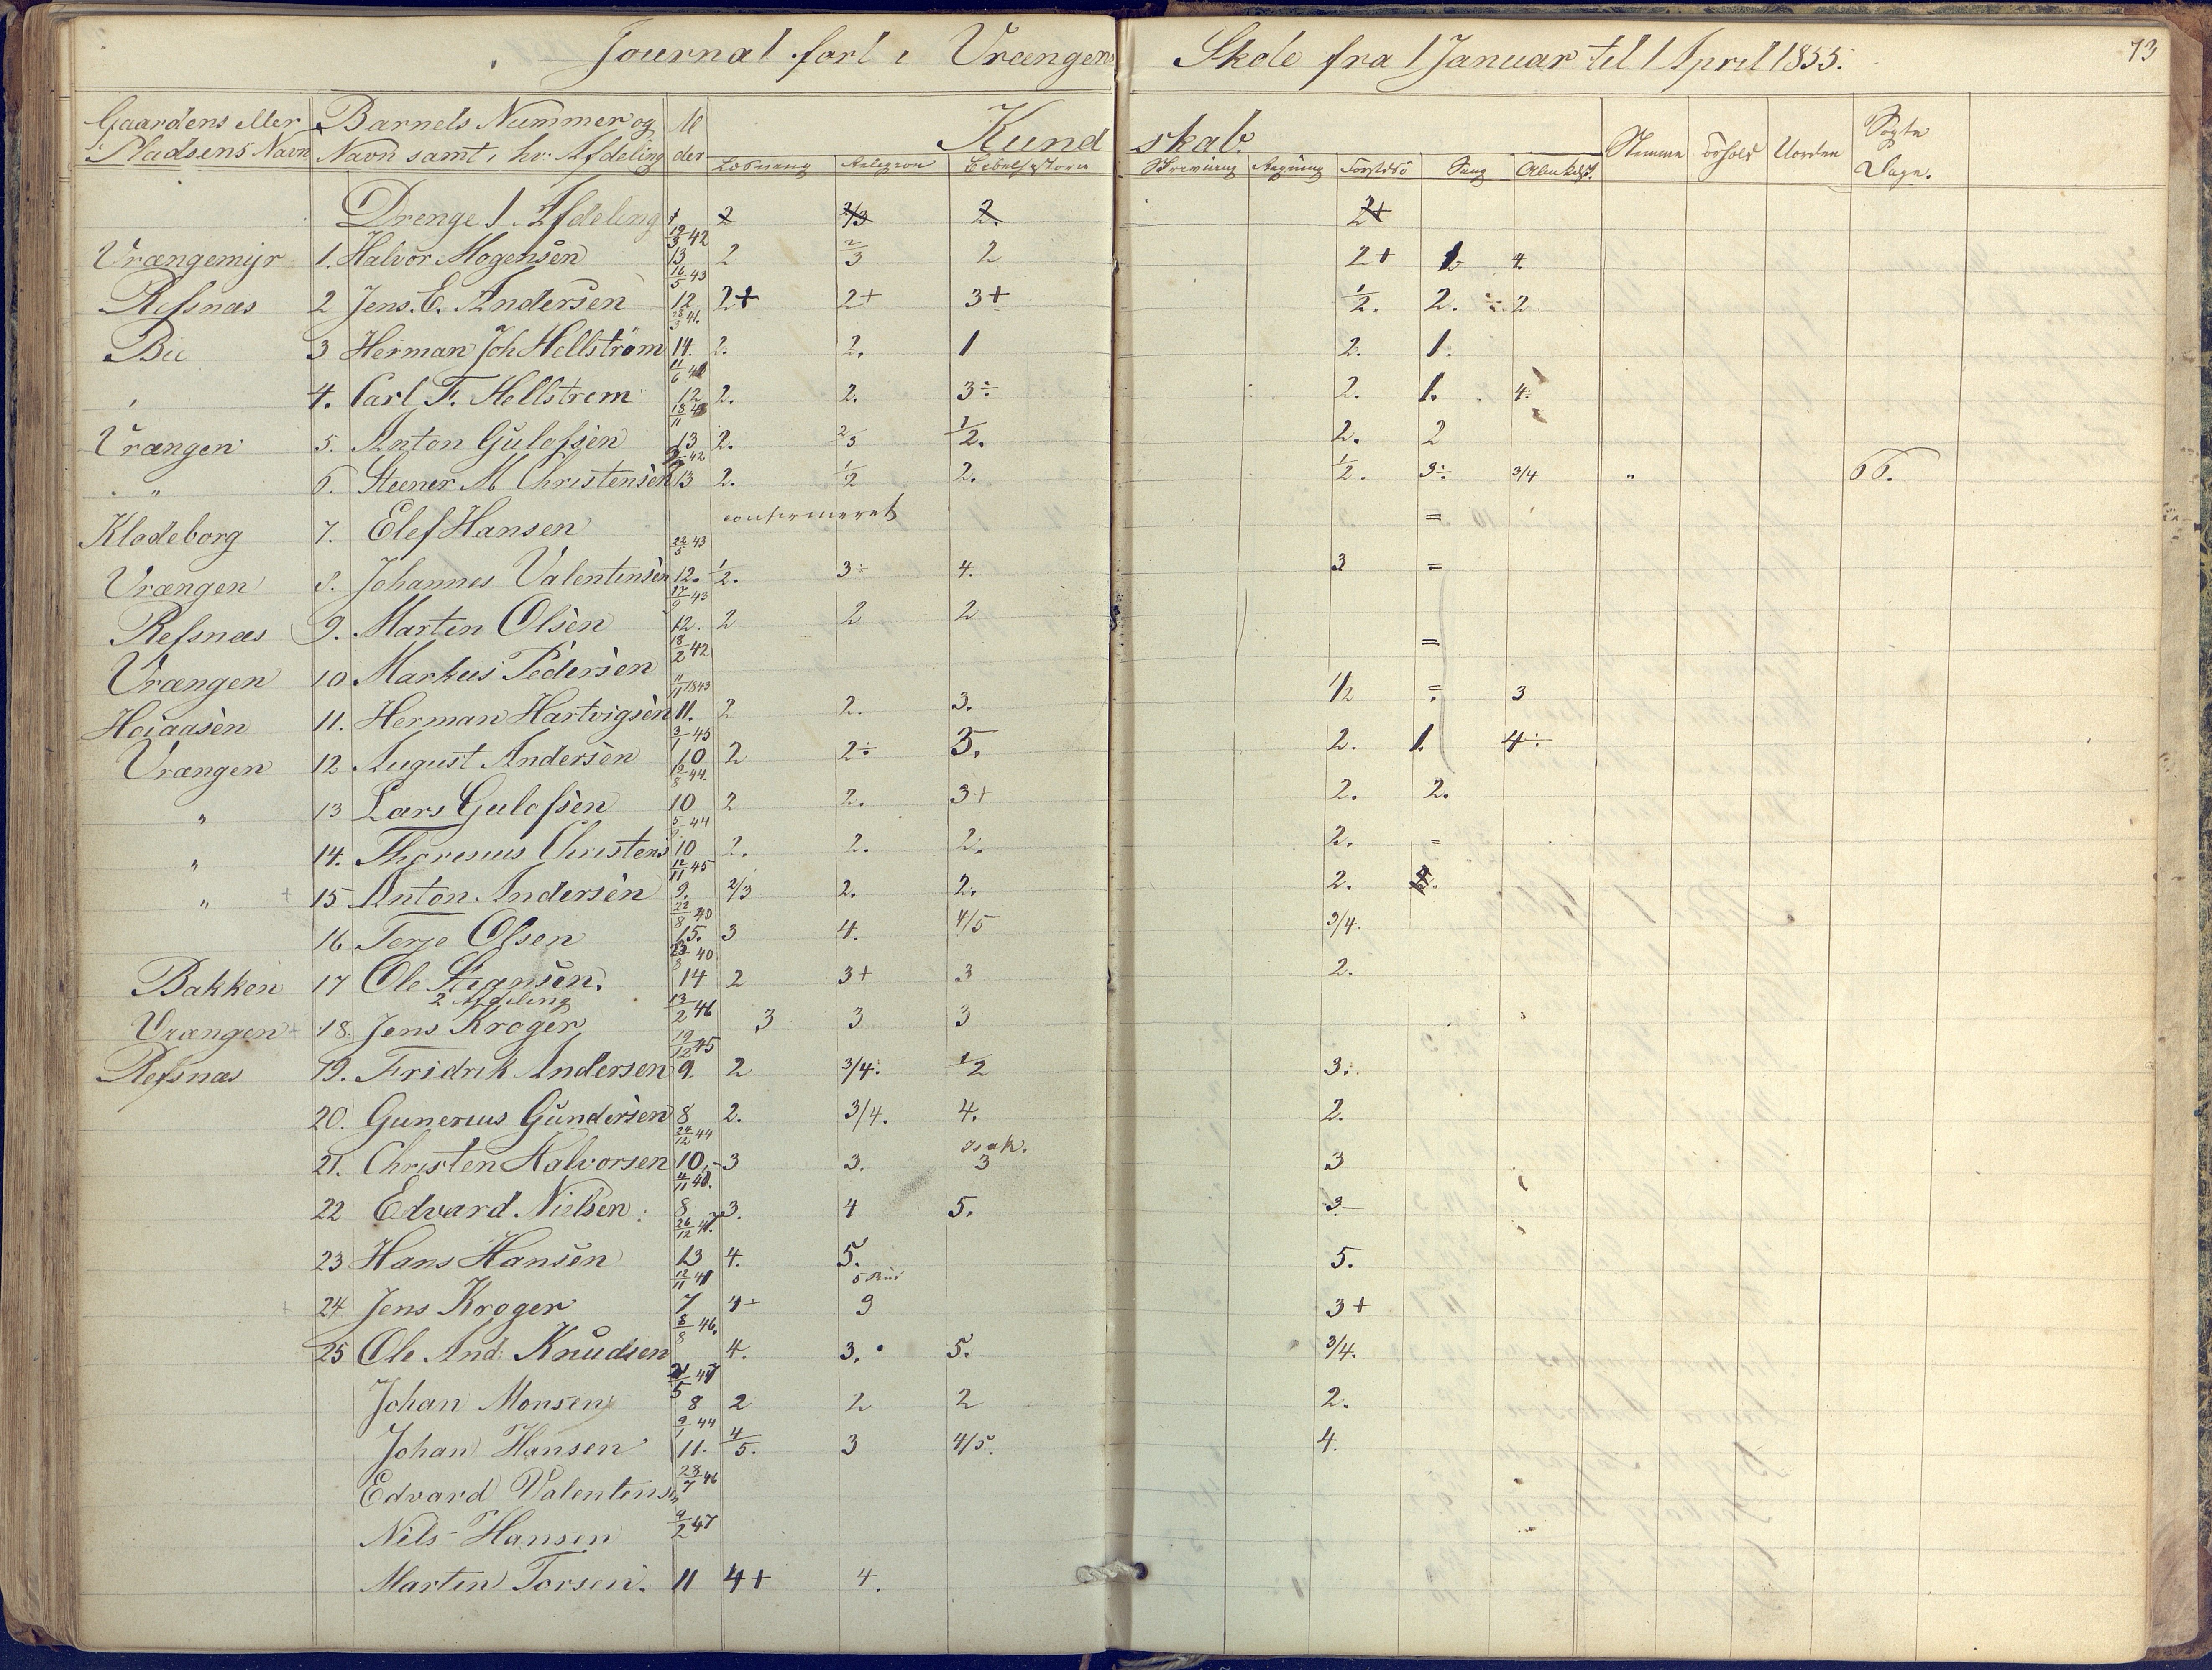 Journal forl i Vrængens Skole fra 1 Januar til 1 April 1855. 73
Gaardens eller Pladsens Navn | Barnets Nummer og Navn samt i hv: Afdeling | Al der | Kundskab.
Løsning | Religion | Bibelhistorie | Skrivning | Regning | Forstds | Sang | Almkdsk. | Stemme | Forhold | Uorden | Søgte Dage.
Drenge 1 Afdeling 2 2/3 2. 2+
19/3 42
Vrængemyr 1. Halvor Mogensen 13 2 2/3 2 2+ 1. 4.
16/5 43
Refsnæs 2 Jens. E. Andersen 12. 2+ 2+ 3+ 1/2. 2. ÷2
28/3 41.
Bie 3 Herman Joh Hellstrøm 14. 2. 2. 1 2. 1.
4. Carl F. Hellstrøm 12 2. 2. 3÷ 2. 1. 4.
Vrængen 5. Anton Gulofsen 13 2. 2/3 1/2. 2. 2
" 6. Steener M Christensen 13 2. 1/2 2. 1/2. 3÷ 3/4 " 66.
Kladeborg 7. Elef Hansen confirmeret =
22/5 43
Vrængen 8. Johannes Valentinsen 12. 1/2. 3÷ 4. 3 =
17/9 43
Refsnæs 9. Marten Olsen 12. 2 2 2
18/2 42
=
Vrængen 10 Markus Pedersen
11/11 1843
Hoiaasen 11. Herman Hartvigsen 11. 2 2. 3. 1/2 = 3
3/1 45
Vrængen 12 August Andersen 10 2 2÷ 3. 2. 1. 4÷
12/8 44.
" 13 Lars Gulofsen 10 2 2. 3+ 2. 2.
" 14. Thoresius Christens 10 2. 2. 2. 2. =
12/11 45
" + 15 Anton Andersen 9. 2/3 2. 2. 2.
22/8 40
16 Terje Olsen 15. 3 4. 4/5 3/4.
23/8 40
Bakken 17 Ole Stiansen. 14 2 3+ 3 2.
2 Afdeling
13/2 46
Vrængen + 18. Jens Kroger 3 3 3
19/12 45
Refsnæs 19. Fridrik Andersen 9 2 3/4. 1/2 3.
20. Gunerius Gundersen 8 2. 3/4. 4. 2.
24/12 44
Isak.
21. Christen Halvorsen 10,- 3 3. 3 3
22 Edvard Nielsen 8 3. 4 5. 3-
23 Hans Hansen 13 4. 5. 5.
12/11 41
24 Jens Kroger 7 4÷ 3 3+
8/8 46.
25 Ole And. Knudsen 4. 3. 5. 3/4.
Johan Monsen 8 2 2 2 2.
9/1 44
Johan Hansen 11. 4/5. 3 4/5. 4.
28/7 46
Edvard Valentinsen
9/2 47
Nils Hansen
Marten Torsen. 11 4+ 4.